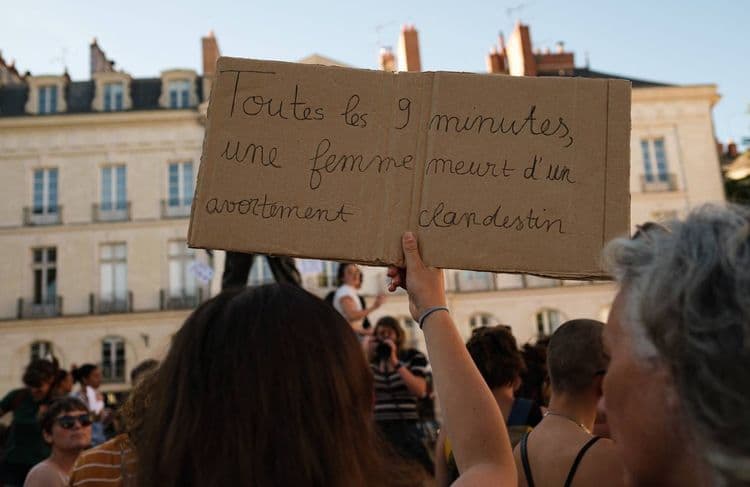 Toutes les 9 minutes,
une femme meurt d'un
avortement clandestin